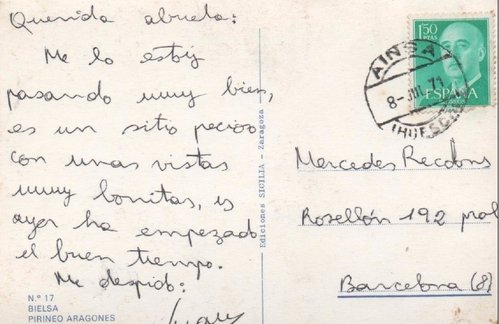 Querida abuela:
Me lo estoy
pasando muy bien,
es un sitio precioso
con unas vistas
muy bonitas, y
ayer ha empezado
el buen tiempo.
Me despido:
N.º 17
BIELSA
PIRINEO ARAGONES
Ediciones SICILIA - Zaragoza
1'50
PTAS
ESPAÑA
AINSA
8-JUL 71
(HUESCA)
Mercedes Recdons
Rosellón 192 pral
Barcelona (8)